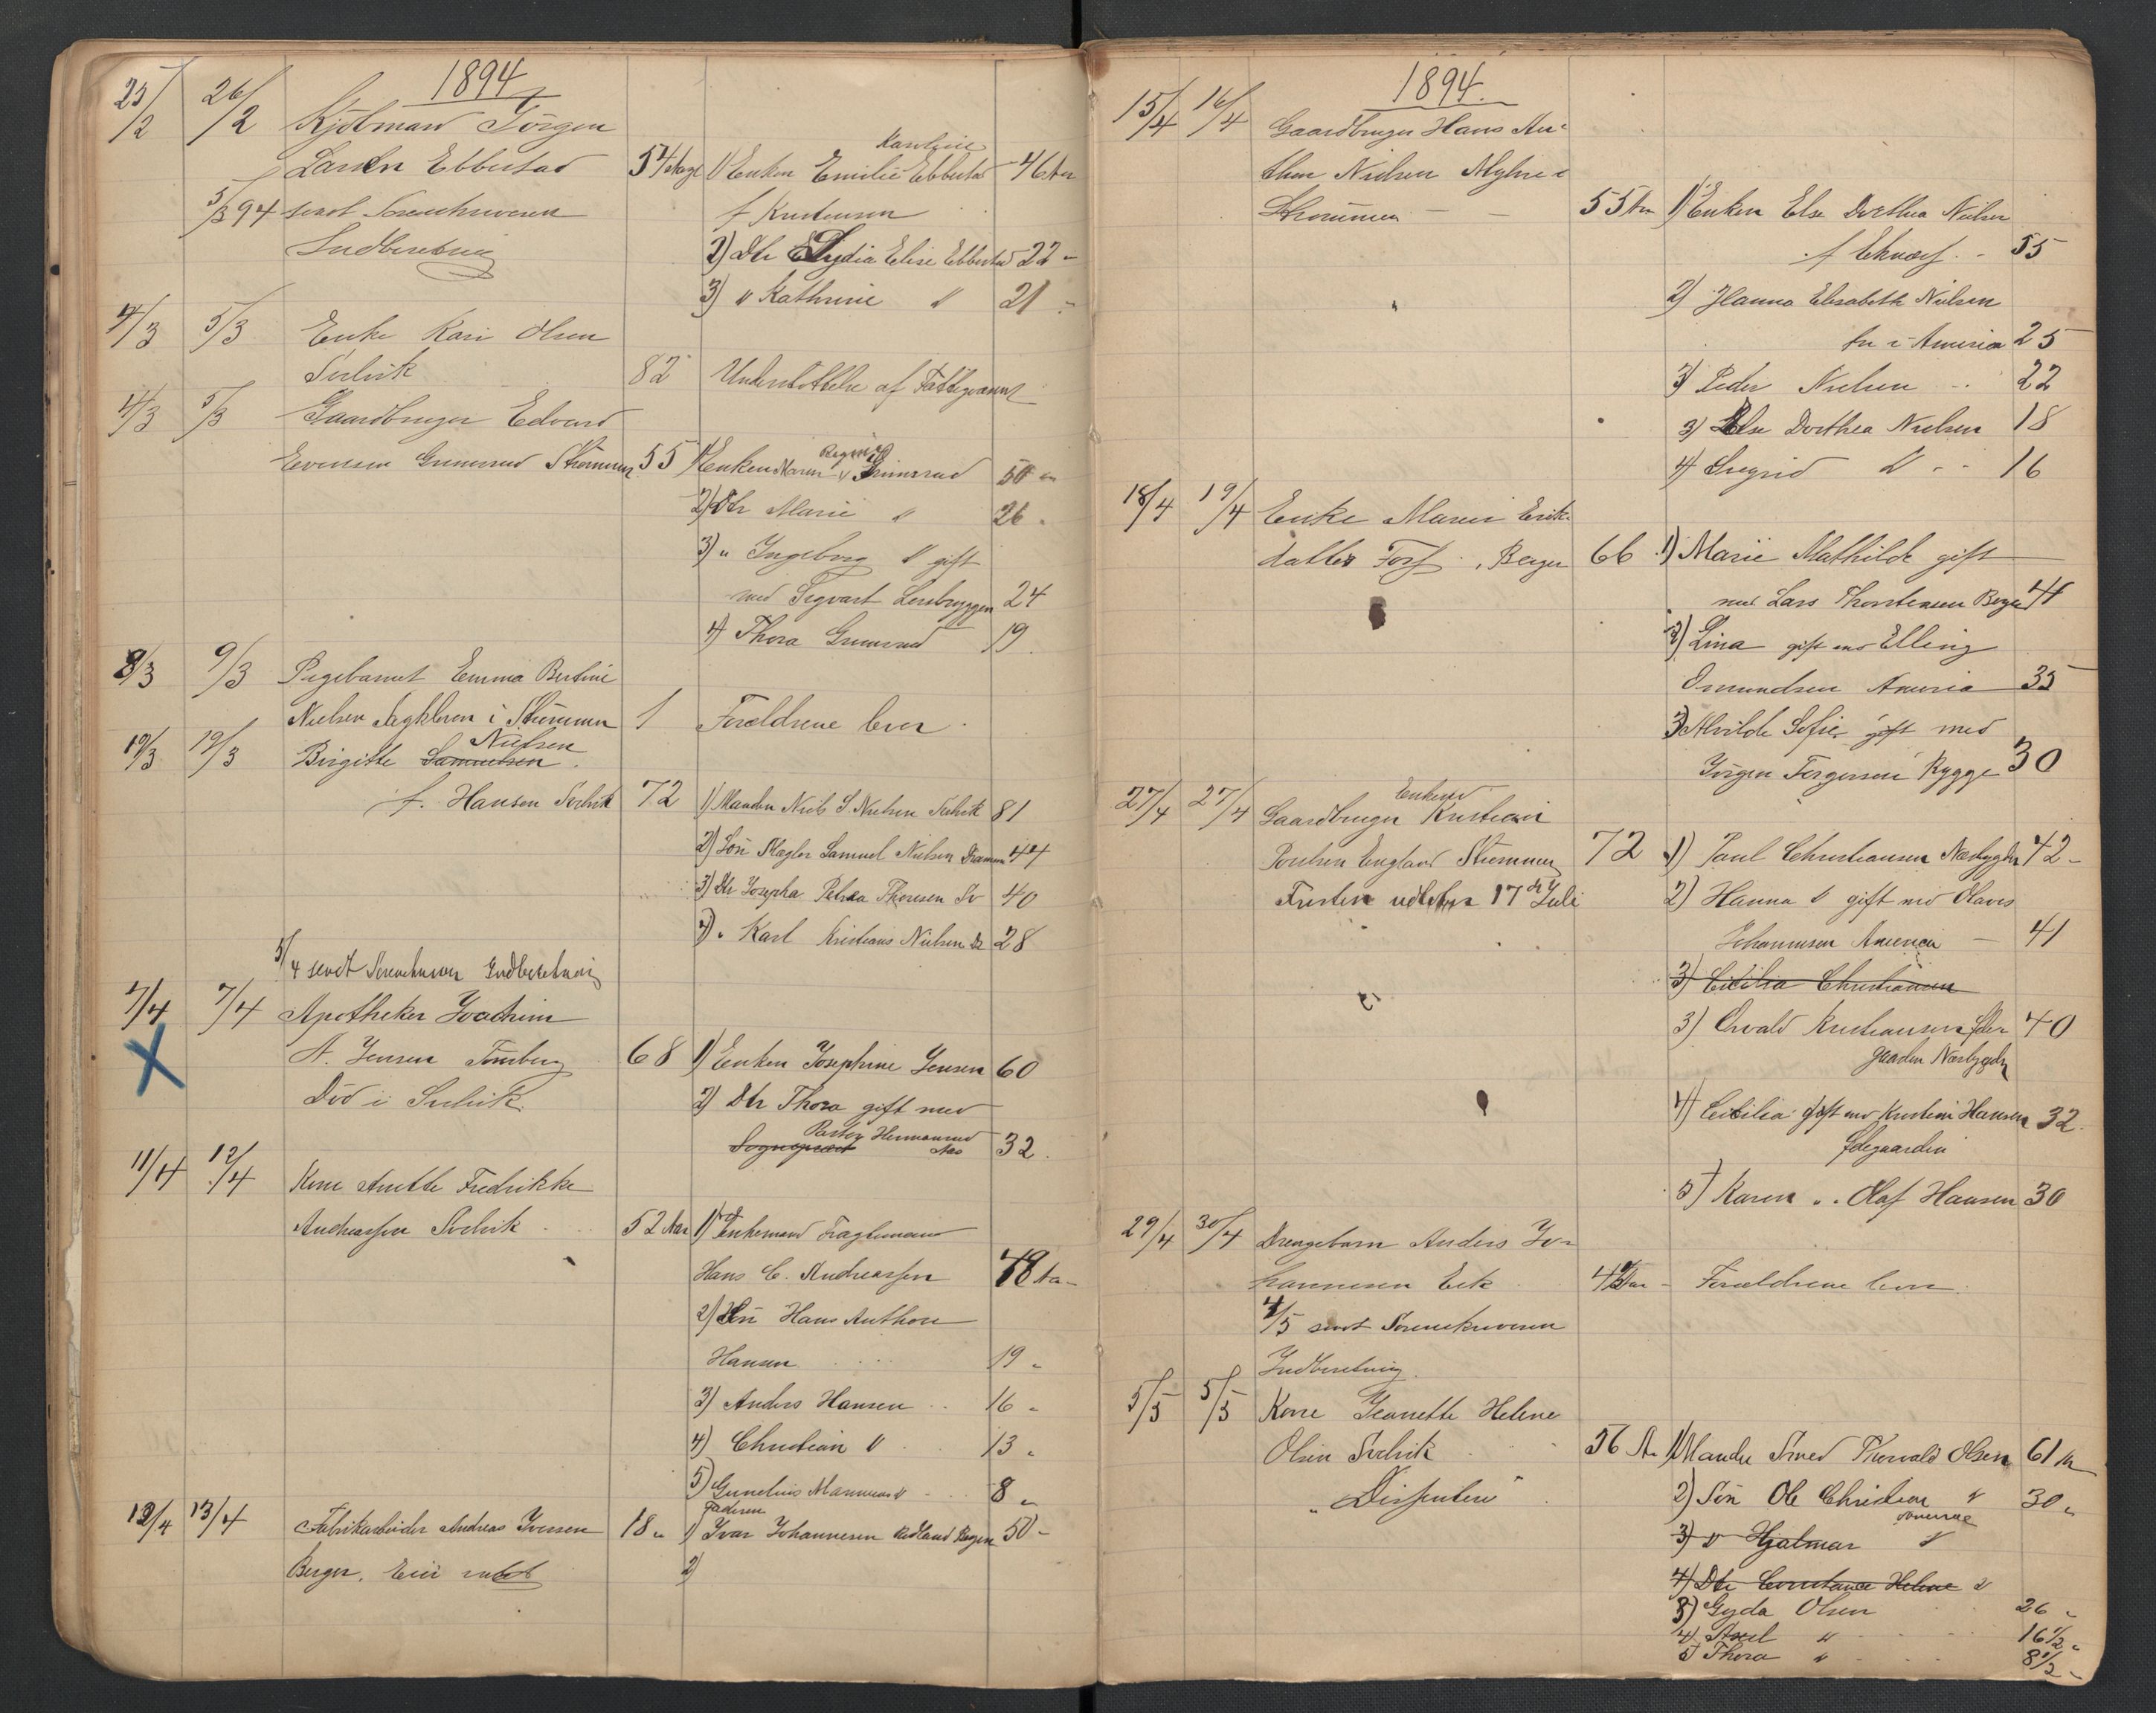 1894
25/2 26/2 Kjöbmand Jörgen
Larsen Ebbestad 54 Aar 1) Enken Emilie Karoline Ebbestad 46 Aar
5/3 94 sendt Sorenskriveren f Kristensen
Indberetning 2) Dtr Lydia Elise Ebbestad 22 "
3) " Kathrine " 21 "
4/3 5/3 Enke Kari Olsen
Svelvik 82 Understöttelse af Fattigvæsenet
4/3 5/3 Gaardbruger Edvard
Evensen Grimsrud Strömmen 55 1) Enken Maren Regine Grimsrud 50
2) Dtr Marie " 26 "
3) " Ingeborg " gift
med Sigvart Lersbryggen 24
4) Thora Grimsrud 19
8/3 9/3 Pigebarnet Emma Bertine
Nielsen Sagkleven i Strömmen 1 Forældrene lever
19/3 19/3 Birgitte Samuelsen Nielsen
f. Hansen Svelvik 72 1) Manden Niels S. Nielsen Svelvik 81
2) Sön Mægler Samuel Nielsen Drammen 44
3) Dtr Josepha Petrea Thoresen Sv 40
4) " Karl Kristians Nielsen Dr 28
5/4 sendt Sorenskriveren Indberetning
7/4 7/4 Apotheker Joachim
A. Jensen Tönsberg 68 1) Enken Josephine Jensen 60
Död i Svelvik 2) Dtr Thora gift med
Sogneprest Pastor Hermanrud Aas 32
11/4 12/4 Kone Anette Fredrikke
Andreassen Svelvik 52 Aar 1) Enkemand Fragtemand
Hans C. Andreassen 48 Aar
2) Sön Hans Anthon
Hansen 19 "
3) Anders Hansen 16 "
4) Christian " 13 "
5) Gunelius Marinius " 8 "
12/4 13/4 Fabrikarbeider Andreas Iversen 18 " 1) Faderen Ivar Johannesen Rödland Bergen 50 "
Berger. Eier intet 2)
1894.
15/4 16/4 Gaardbruger Hans An-
thon Nielsen Myhre i
Strömmen 55 Aar 1) Enken Else Dorthea Nielsen
f 55
2) Hanna Elisabeth Nielsen
fr i America 25
3) Peder Nielsen 22
3) Else Dorthea Nielsen 18
4) Sigrid " 16
18/4 19/4 Enke Maren Erik-
datter Foss, Berger 66 1) Marie Mathilde gift
med Lars Thorstensen Berger 41
2) Lina gift med Elling
Osmundsen America 35
3) Alvilde Sofie gift med
Jörgen Jörgensen Rygge 30
27/4 27/4 Gaardbruger Enkemd Kristian
Poulsen England Strömmen 72 1) Paul Christiansen Nesbygden 42 "
Fristen udløber 17de Juli 2) Hanna " gift med Olaves
Johannesen America 41
3) Cicilia Christiansen
3) Osvald Kristiansen Øde- 40
gaarden Nesbygden
4) Cicilia gift med Kristian Hansen 32
Ødegaarden
5) Karen " " Olaf Hansen 30
29/4 30/4 Drengebarn Anders Jo-
hannesen Eik 4 1/2 Aar Forældrene lever
4/5 sendt Sorenskriveren
Indberetning
5/5 5/5 Kone Jeanette Helene
Olsen Svelvik 56 Aar 1) Manden Smed Thorvald Olsen 61 Aar
"Dissenter" 2) Sön Ole Christian " 30 "
3) " Hjalmar "
4) Dtr Constance Helene "
3) Gyda Olsen 26 "
4) Axel " 16 1/2 "
5) Thora " 8 1/2 "